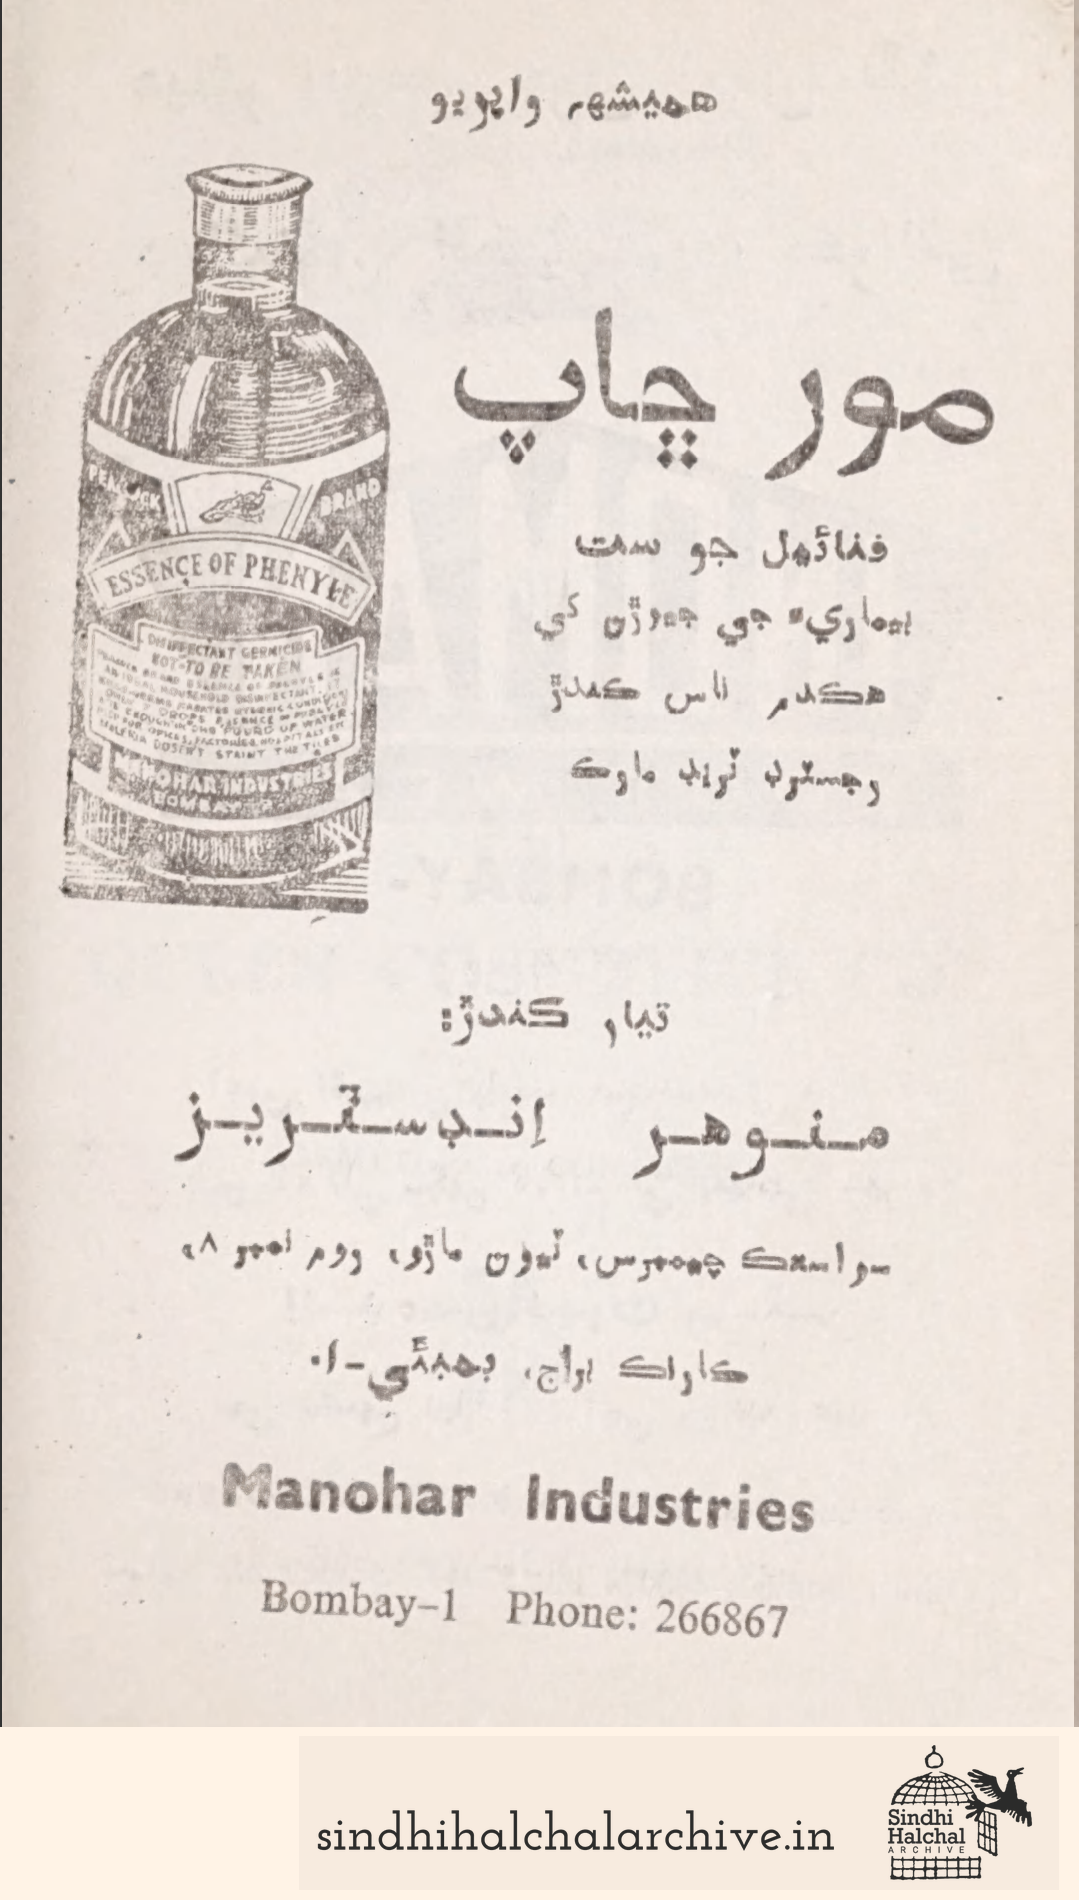 هميشهہ واپريو
مور ڇاپ
فنائيل جو ست
بيماريءَ جي جيوڙن کي
هڪدم ناس ڪندڙ
رجسٽرڊ ٽريڊ مارڪ
PEACOCK BRAND
ESSENCE OF PHENYLE
DISINFECTANT GERMICIDE
NOT TO BE TAKEN
MANOHAR INDUSTRIES
BOMBAY
تيار ڪندڙ:
منوهر اِنڊسٽريز
سواستڪ چيمبرس، ٽيون ماڙو، روم نمبر ۸،
ڪارناڪ براج، بمبئي-۱۰
Manohar Industries
Bombay-1 Phone: 266867
sindhihalchalarchive.in
Sindhi
Halchal
ARCHIVE